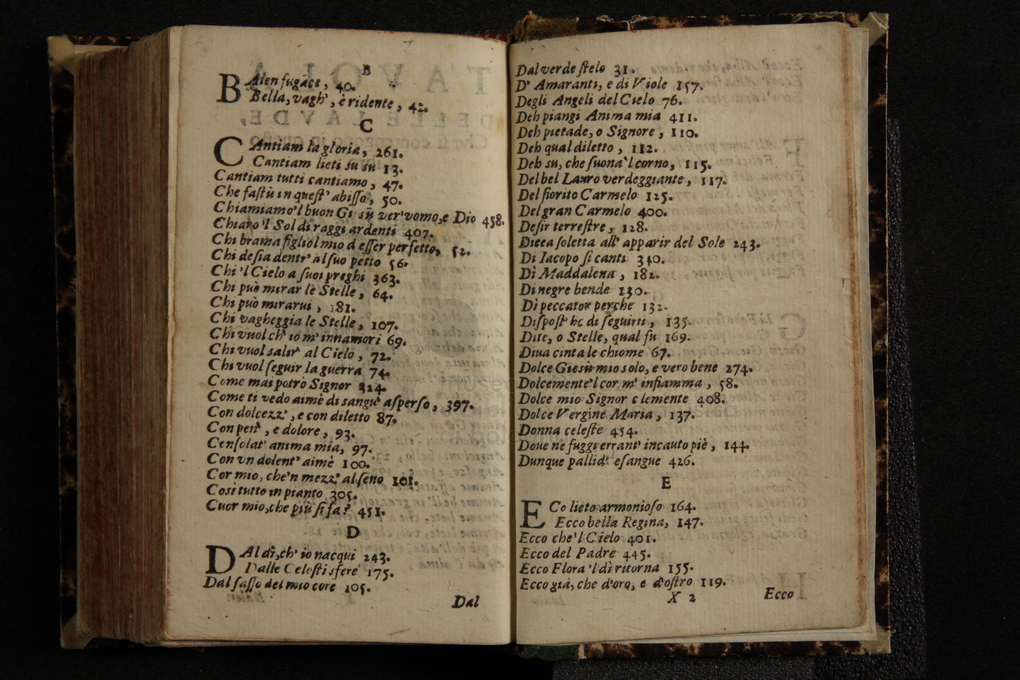 B
BAlen fugàce, 40.
Bella, vagh', è ridente, 42.
C
CAntiam la gloria, 261.
Cantiam lieti su su 13.
Cantiam tutti cantiamo, 47.
Che fastù in quest' abisso, 50.
Chiamiamo'l buon Giesù ver'vomo,e Dio 458.
Chiaro 'l Sol di raggi ardenti 407.
Chi brama figliol mio d'esser perfetto, 52.
Chi desia dentr' al suo petto 56.
Chi 'l Cielo a suoi preghi 363.
Chi può mirar lè Stelle, 64.
Chi può mirarui, 181.
Chi vagheggia le Stelle, 107.
Chi vuol ch' io m' innamori 69.
Chi vuol salir' al Cielo, 72.
Chi vuol seguir la guerra 74.
Come mai potrò Signor 324.
Come ti vedo aimè di sangue asperso, 397.
Con dolcezz', e con diletto 87.
Con pen', e dolore, 93.
Consolat' anima mia, 97.
Con vn dolent' aimè 100.
Cor mio, che'n mezz' al seno 101.
Cosi tutto in pianto 305.
Cuor mio,che più si fa? 451.
D
DAl dì,ch' io nacqui 243.
Dalle Celesti sfere 175.
Dal sasso del mio core 105.
Dal
Dal verde stelo 31.
D' Amaranti, e di Viole 157.
Degli Angeli del Cielo 76.
Deh piangi Anima mia 411.
Deh pietade, o Signore, 110.
Deh qual diletto, 112.
Deh su, che suona'l corno, 115.
Del bel Lauro verdeggiante, 117.
Del fiorito Carmelo 125.
Del gran Carmelo 400.
Desir terrestre, 128.
Dicea soletta all' apparir del Sole 243.
Di Iacopo si canti 340.
Dì Maddalena, 182.
Di negre bende 130.
Dì peccator perche 132.
Dispost' hò di seguirti, 135.
Dite, o Stelle, qual fu 169.
Diua cinta le chiome 67.
Dolce Giesù mio solo, e vero bene 274.
Dolcemente'l cor m' infiamma, 58.
Dolce mio Signor clemente 408.
Dolce Vergine Maria, 137.
Donna celeste 454.
Doue nè fuggi errant' incauto piè, 144.
Dunque pallid' esangue 426.
E
ECo lieto armonioso 164.
Ecco bella Regina, 147.
Ecco che'l Cielo 401.
Ecco del Padre 445.
Ecco Flora 'l dì ritorna 155.
Ecco già, che d'oro, e d'ostro 119.
X 2
Ecco